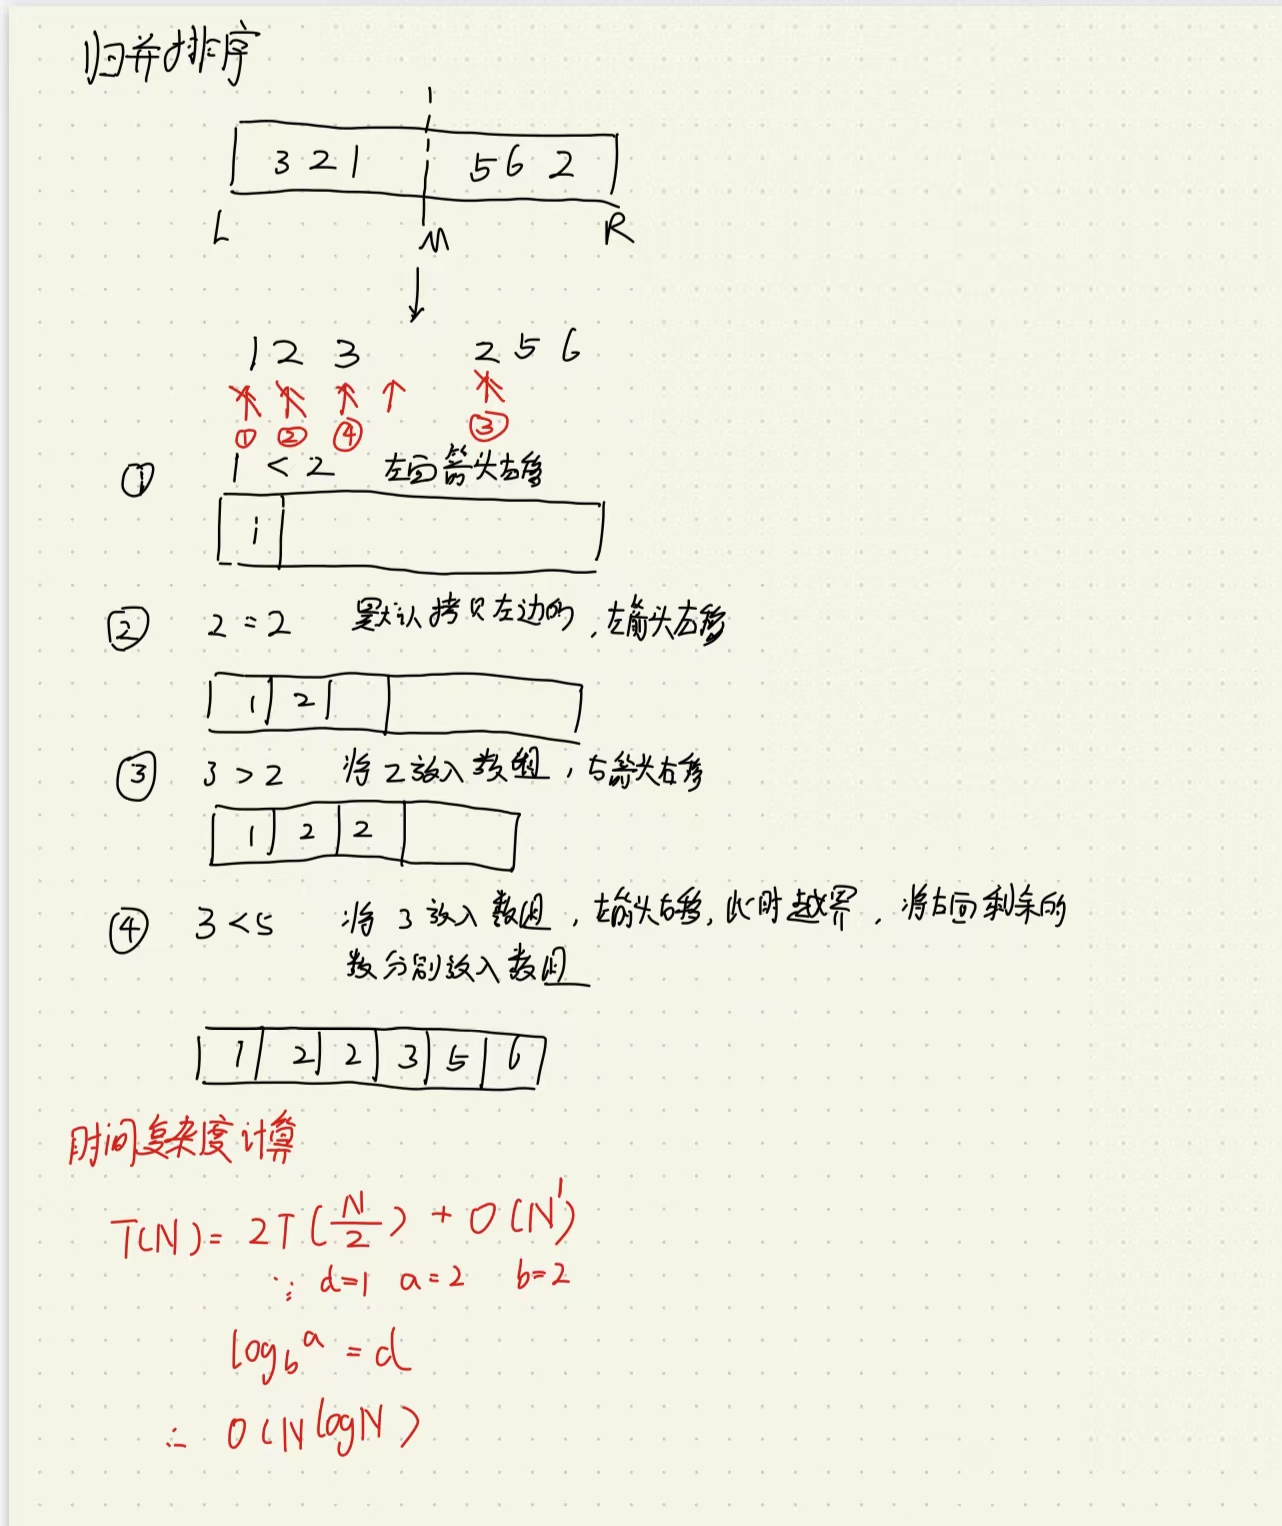 归并排序
3 2 1 5 6 2
L M R
1 2 3 2 5 6
① ② ④ ③
① 1 < 2 左面箭头右移
1
② 2 = 2 默认拷贝左边的,左箭头右移
1 2
③ 3 > 2 将2放入数组,右箭头右移
1 2 2
④ 3 < 5 将3放入数组,左箭头右移,此时越界,将右面剩余的
数分别放入数组
1 2 2 3 5 6
时间复杂度计算
T(N) = 2T(N/2) + O(N¹)
∵ d=1 a=2 b=2
log_b a = d
∴ O(N logN)